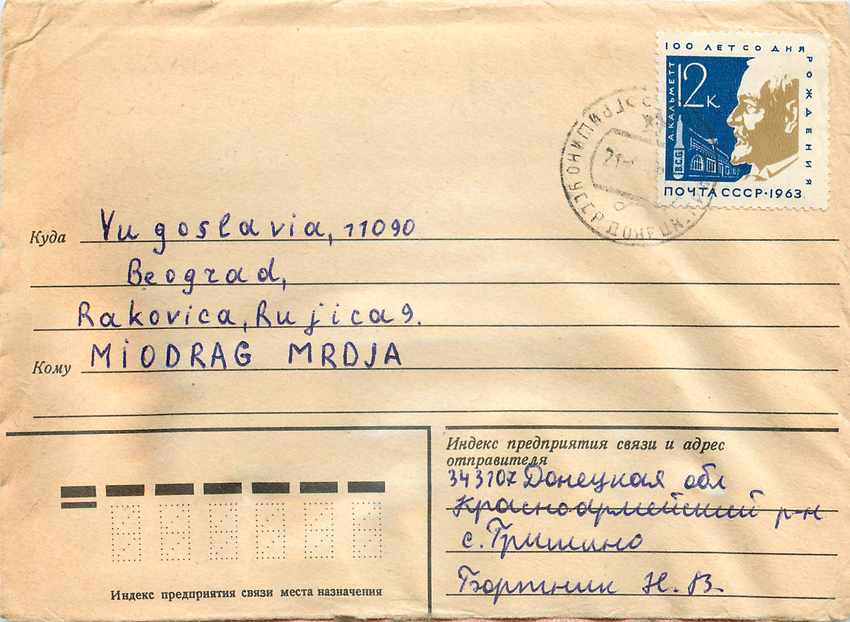 100 ЛЕТ СО ДНЯ
РОЖДЕНИЯ
А. КАЛЬМЕТТ
12 К
BCG
ПОЧТА СССР · 1963
УССР ДОНЕЦК.
21
Куда Yugoslavia, 11090
Beograd,
Rakovica, Rujica 9.
Кому MIODRAG MRDJA
Индекс предприятия связи и адрес
отправителя
343107 Донецкая обл
Красноармейский р-н
с. Гришино
Бортник Н. В.
Индекс предприятия связи места назначения